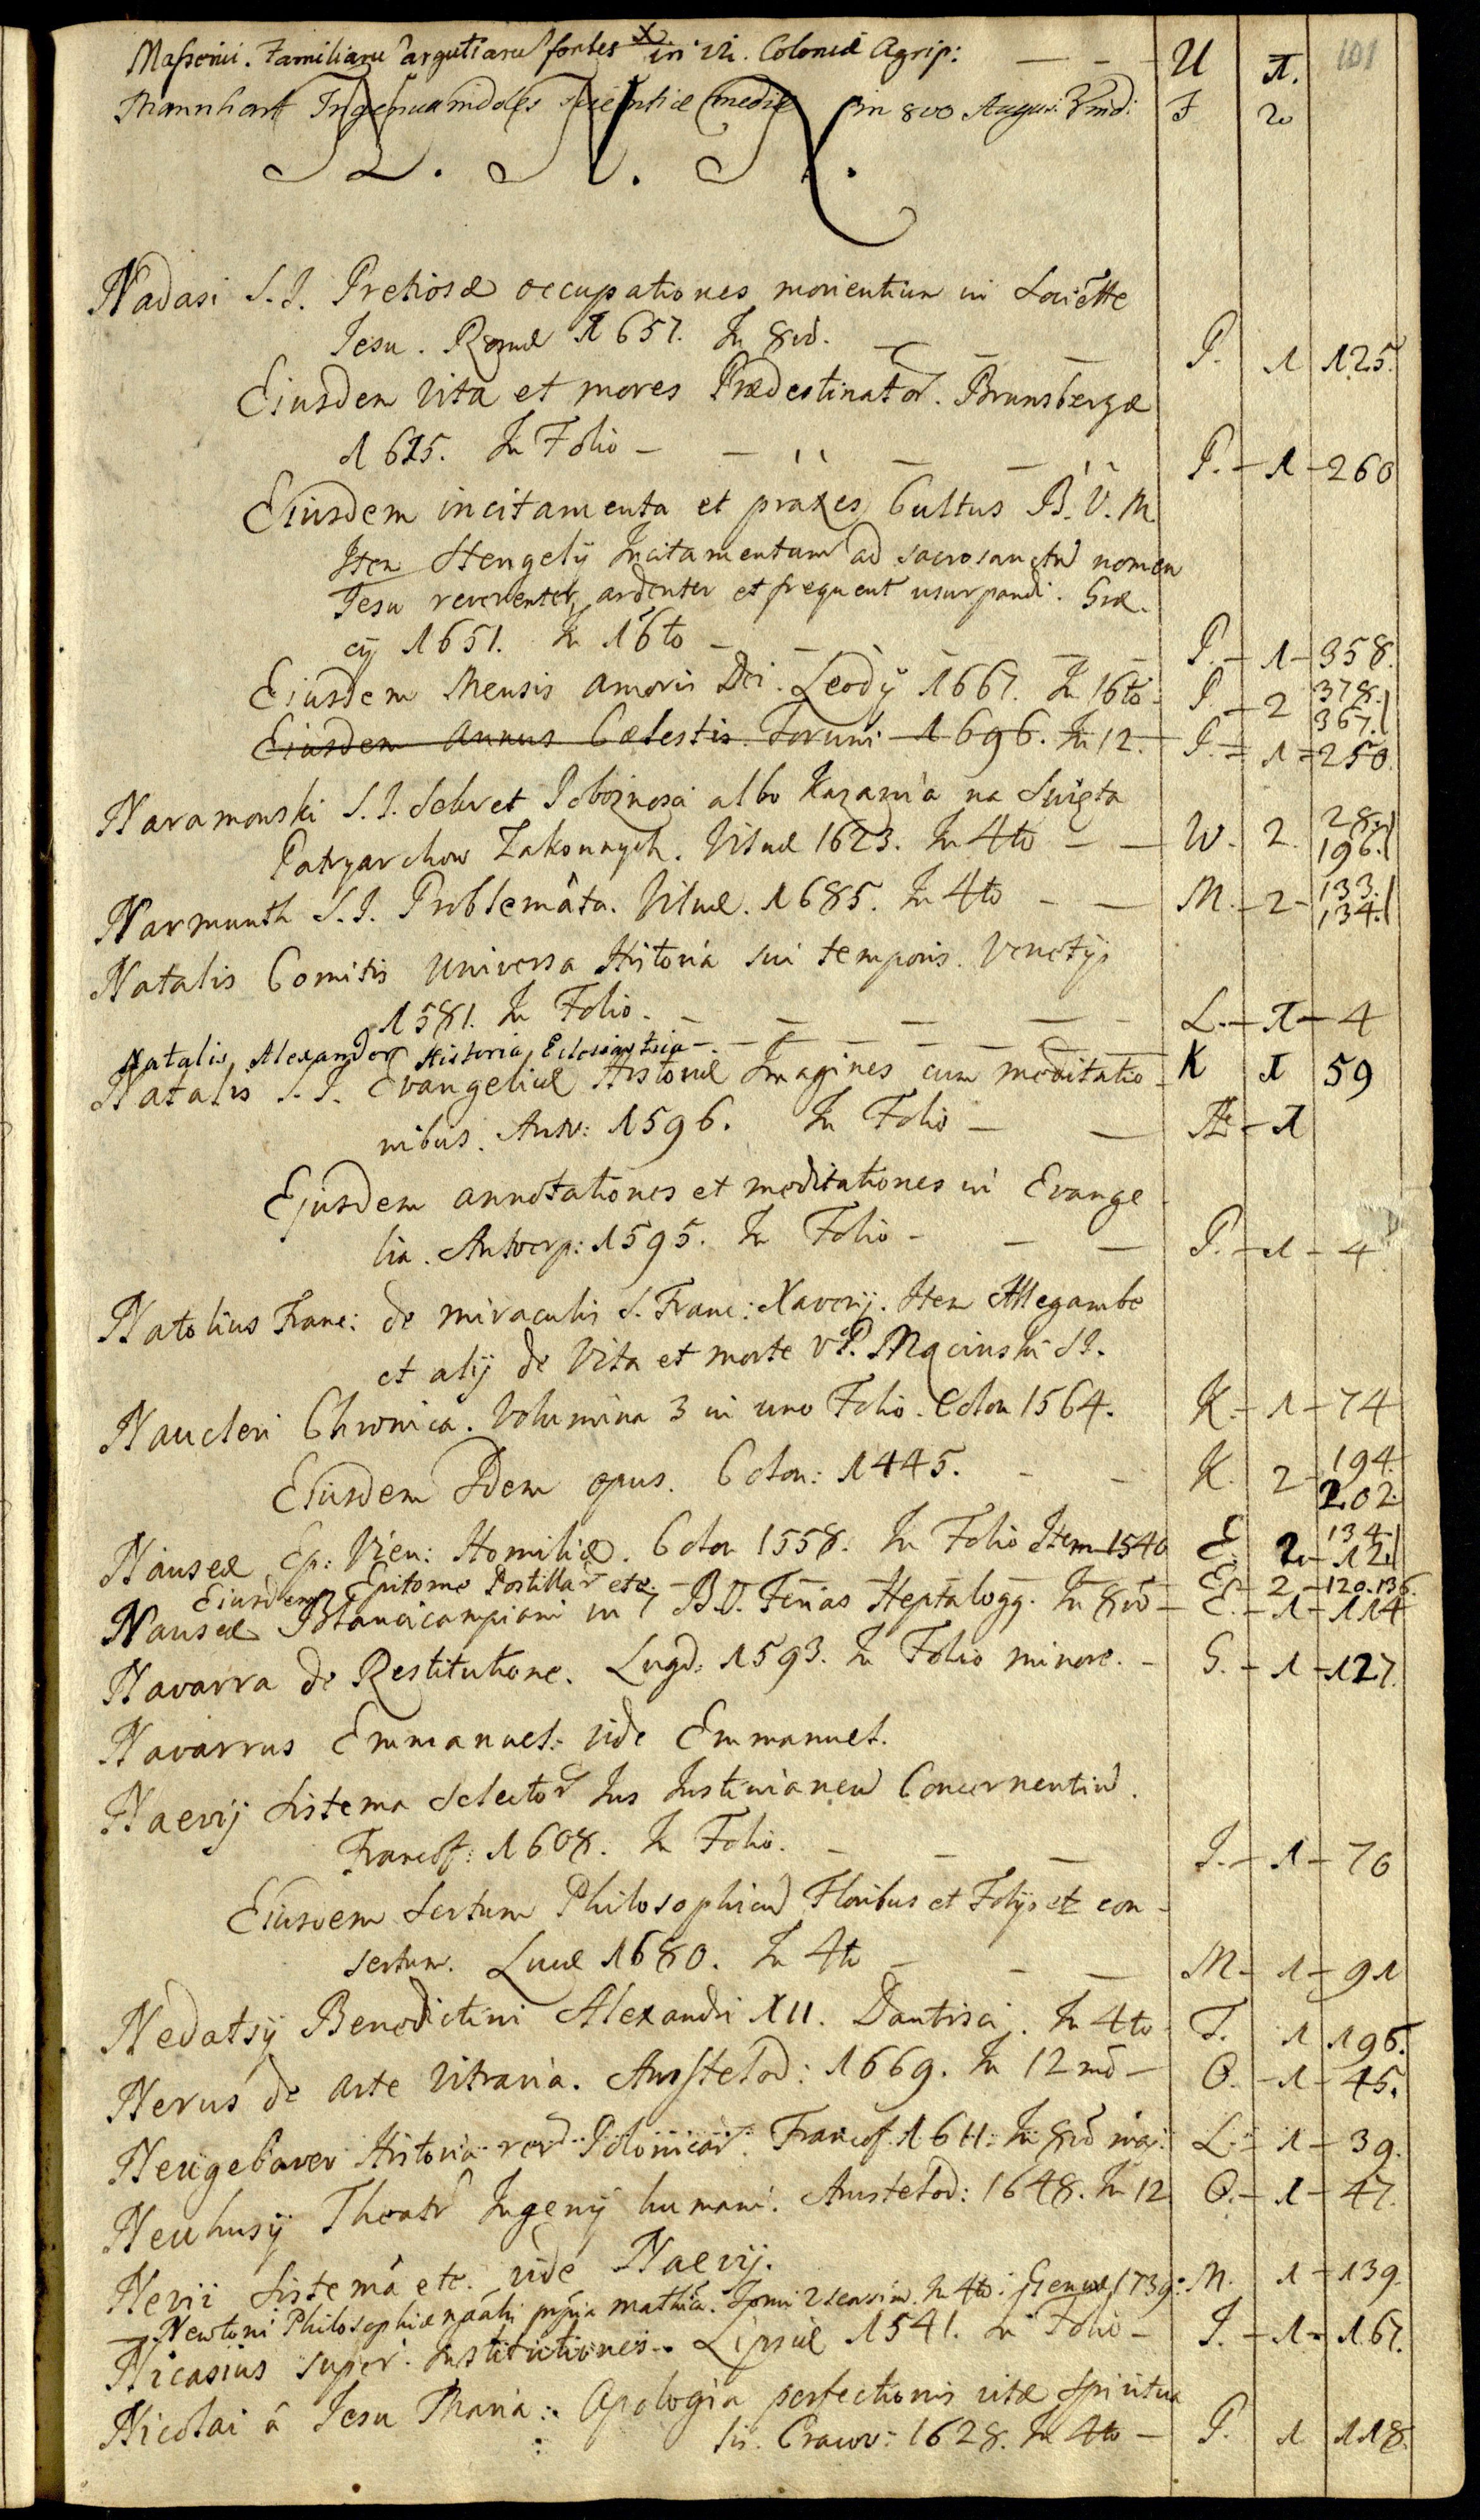 101
Massenii. Familiaru argutiaru fontes in 12. Coloniæ Agrip: — — U 1.
Mannhart Ingenua indoles scientiæ mediæ in 8vo August: Vind: F 2
N. N. N.
Nadasi S.J. Pretiosæ occupationes morientium in Societte
Jesu. Romæ 1657. In 8vo. — — — P. 1 125.
Eiusdem vita et mores Prædestinator. Brunsbergæ
1625. In Folio — — — — P. — 1 — 260
Eiusdem incitamenta et praxes Cultus B.V.M.
Item Stengelij Incitamentum ad sacrosanctu nomen
Jesu reverenter, ardenter et frequent usurpandi. Græ-
cij 1651. In 16to — — — — P. — 1 — 358.
Eiusdem Mensis amoris Dei. Leodij 1667. In 16to. P. — 2 378. 367.
Eiusdem annus Cælestis. Toruni 1696. In 12. — P. = 1 = 250.
Naramowski S.J. Sekret Pobożnosci albo Kazania na Swięta
Patryarchow Zakonnych. Vilnæ 1623. In 4to — — W. 2. 28. 196.
Narmunth S.J. Problemata. Vilnæ. 1685. In 4to — — M. — 2 — 133. 134.
Natalis Comitis Universa Historia sui temporis. Venetijs
1581. In Folio. — — — — L. — 1 — 4
Natalis Alexander Historia Eclesiastica — — — — K 1 59
Natalis S.J. Evangelicæ Historiæ Imagines cum meditatio-
nibus. Antv: 1596. In Folio — — Æ — 1
Ejusdem annotationes et meditationes in Evange-
lia. Antverp: 1595. In Folio — — — P. — 1 — 4
Natolius Franc: de miraculis S. Franc: Xaverij. Item Allegambe
et alij de Vita et morte v P. Męcinski SI.
Naucleri Chronica. Volumina 3 in uno Folio. Colon 1564. K. — 1 — 74
Eiusdem Idem opus. Colon: 1445. — — K. 2 — 194. 202.
Nauseæ Ep: Vien: Homiliæ. Colon 1558. In Folio Item 1540 E. 2 — 134. 12.
Eiusdem Epitome Postillar etc. — — — E. — 2 — 120. 136.
Nauseæ Blancicampiani in 7 B.V. Ferias Heptalogg. In 8vo — E. — 1 — 114
Navarra de Restitutione. Lugd: 1593. In Folio minore. — S. — 1 — 127.
Navarrus Emmanuel: vide Emmanuel.
Naevij Sistema Selector Jus Justinianeu Concernentiu.
Francof: 1608. In Folio. — — — J. — 1 — 76
Eiusdem Sertum Philosophicu Floribus et Folijs et con-
sertum. Lunæ 1680. In 4to — — — M. — 1 — 91
Nedatsij Benedictini Alexandri XII. Dantisci. In 4to T. 1 196.
Nerus de arte Vitraria. Amstelod: 1669. In 12mo — O. — 1 — 45.
Neugebaver Historia reru Polonicar. Francof. 1611. In 8vo maj: L. — 1 — 39.
Neuhusij Theatr Ingenij humani. Amstelod: 1648. In 12 O. — 1 — 47.
Nevii Sistema etc. vide Naevij.
Newtoni Philosophiæ nãalis prpia mathca. Tomi 2 seorsim. In 4to: Genevæ 1739: M. 1 — 139.
Nicasius super Institutiones. Lipsiæ 1541. in Folio — J. — 1 — 167.
Nicolai â Jesu Maria: Apologia perfectionis vitæ Spiritua
lis. Cracov: 1628. In 4to — P. 1 118.